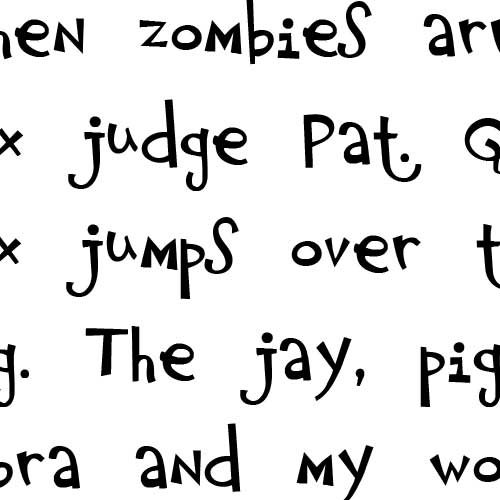 hen zombies arr
x judge Pat. Q
x jumps over t
g. The jay, pig
ora and my wo